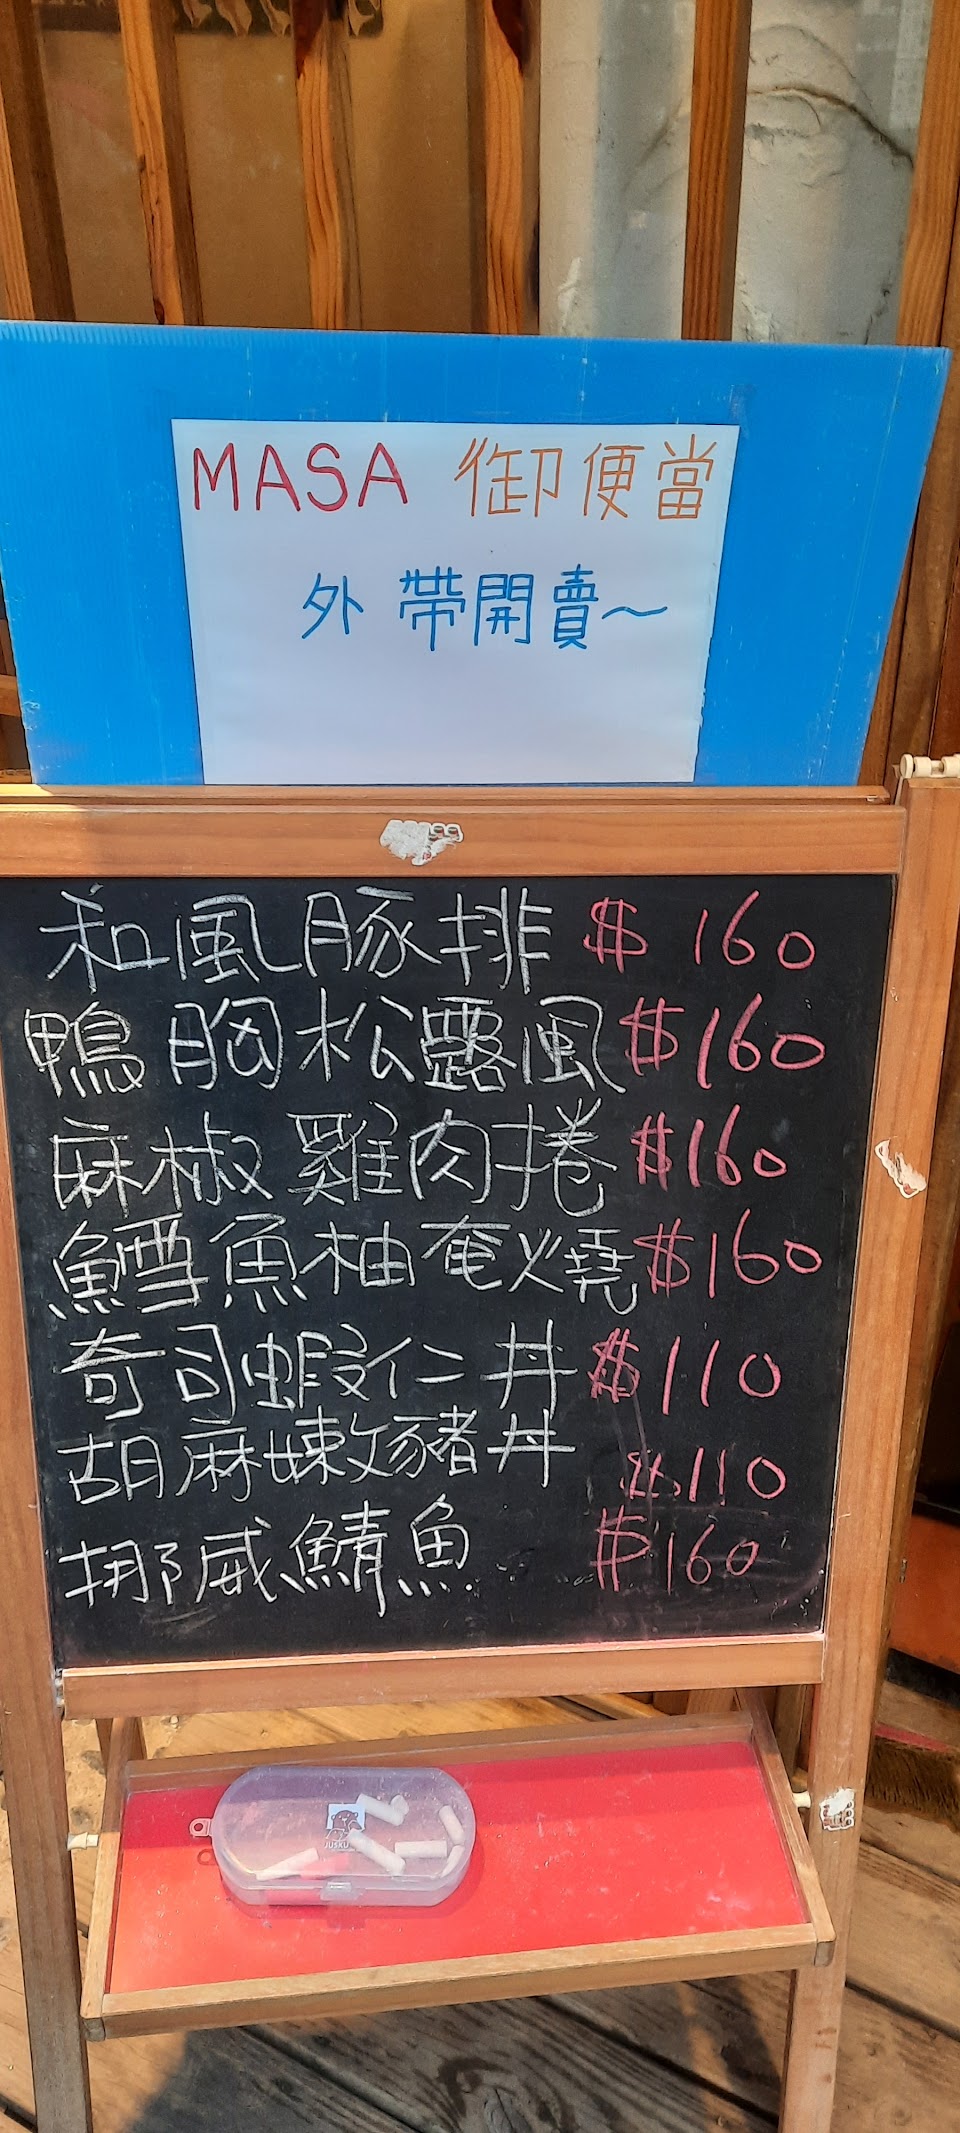 MASA 御便當
外帶開賣～
和風豚排 $160
鴨胸松露風 $160
麻椒雞肉捲 $160
鱈魚柚奄火燒 $160
奇司蝦仁丼 $110
胡麻嫩豬丼 $110
挪威鯖魚 $160
JUSKU